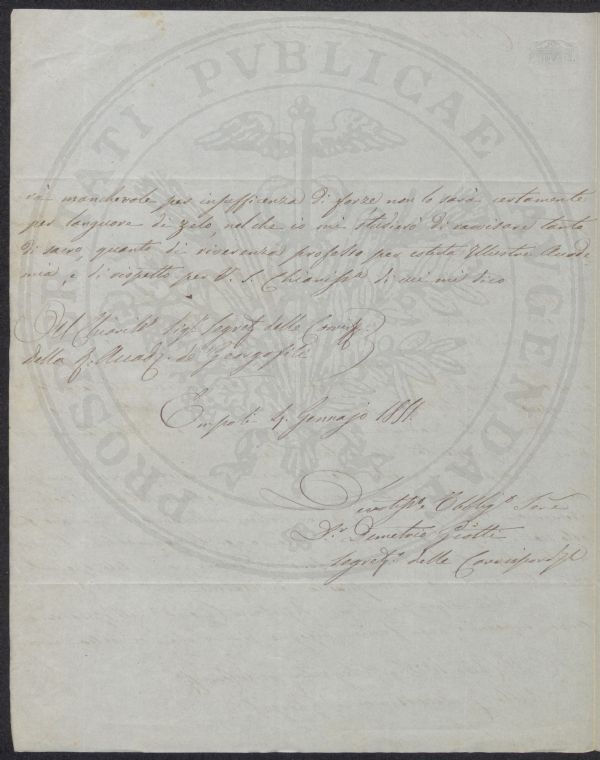 PROSPERITATI PVBLICAE AVGENDAE
rà manchevole per insufficienza di forze non lo sarà certamente
per languore di zelo, nel che io mi studierò di ravvisare tanto
di sacro, quanto di riverenza professo per cotesta Illustre Accade-
mia, e di rispetto per V. S. Chiariss.ª di cui mi dico
Del Chiariss.º Sig.r Segret. delle Corrisp.
della R. Accad. de' Georgofili
Empoli 4. Gennajo 1851.
Devotiss.º Obblig.º Serv.e
D.r Demetrio
Segret.º delle Corrispond.